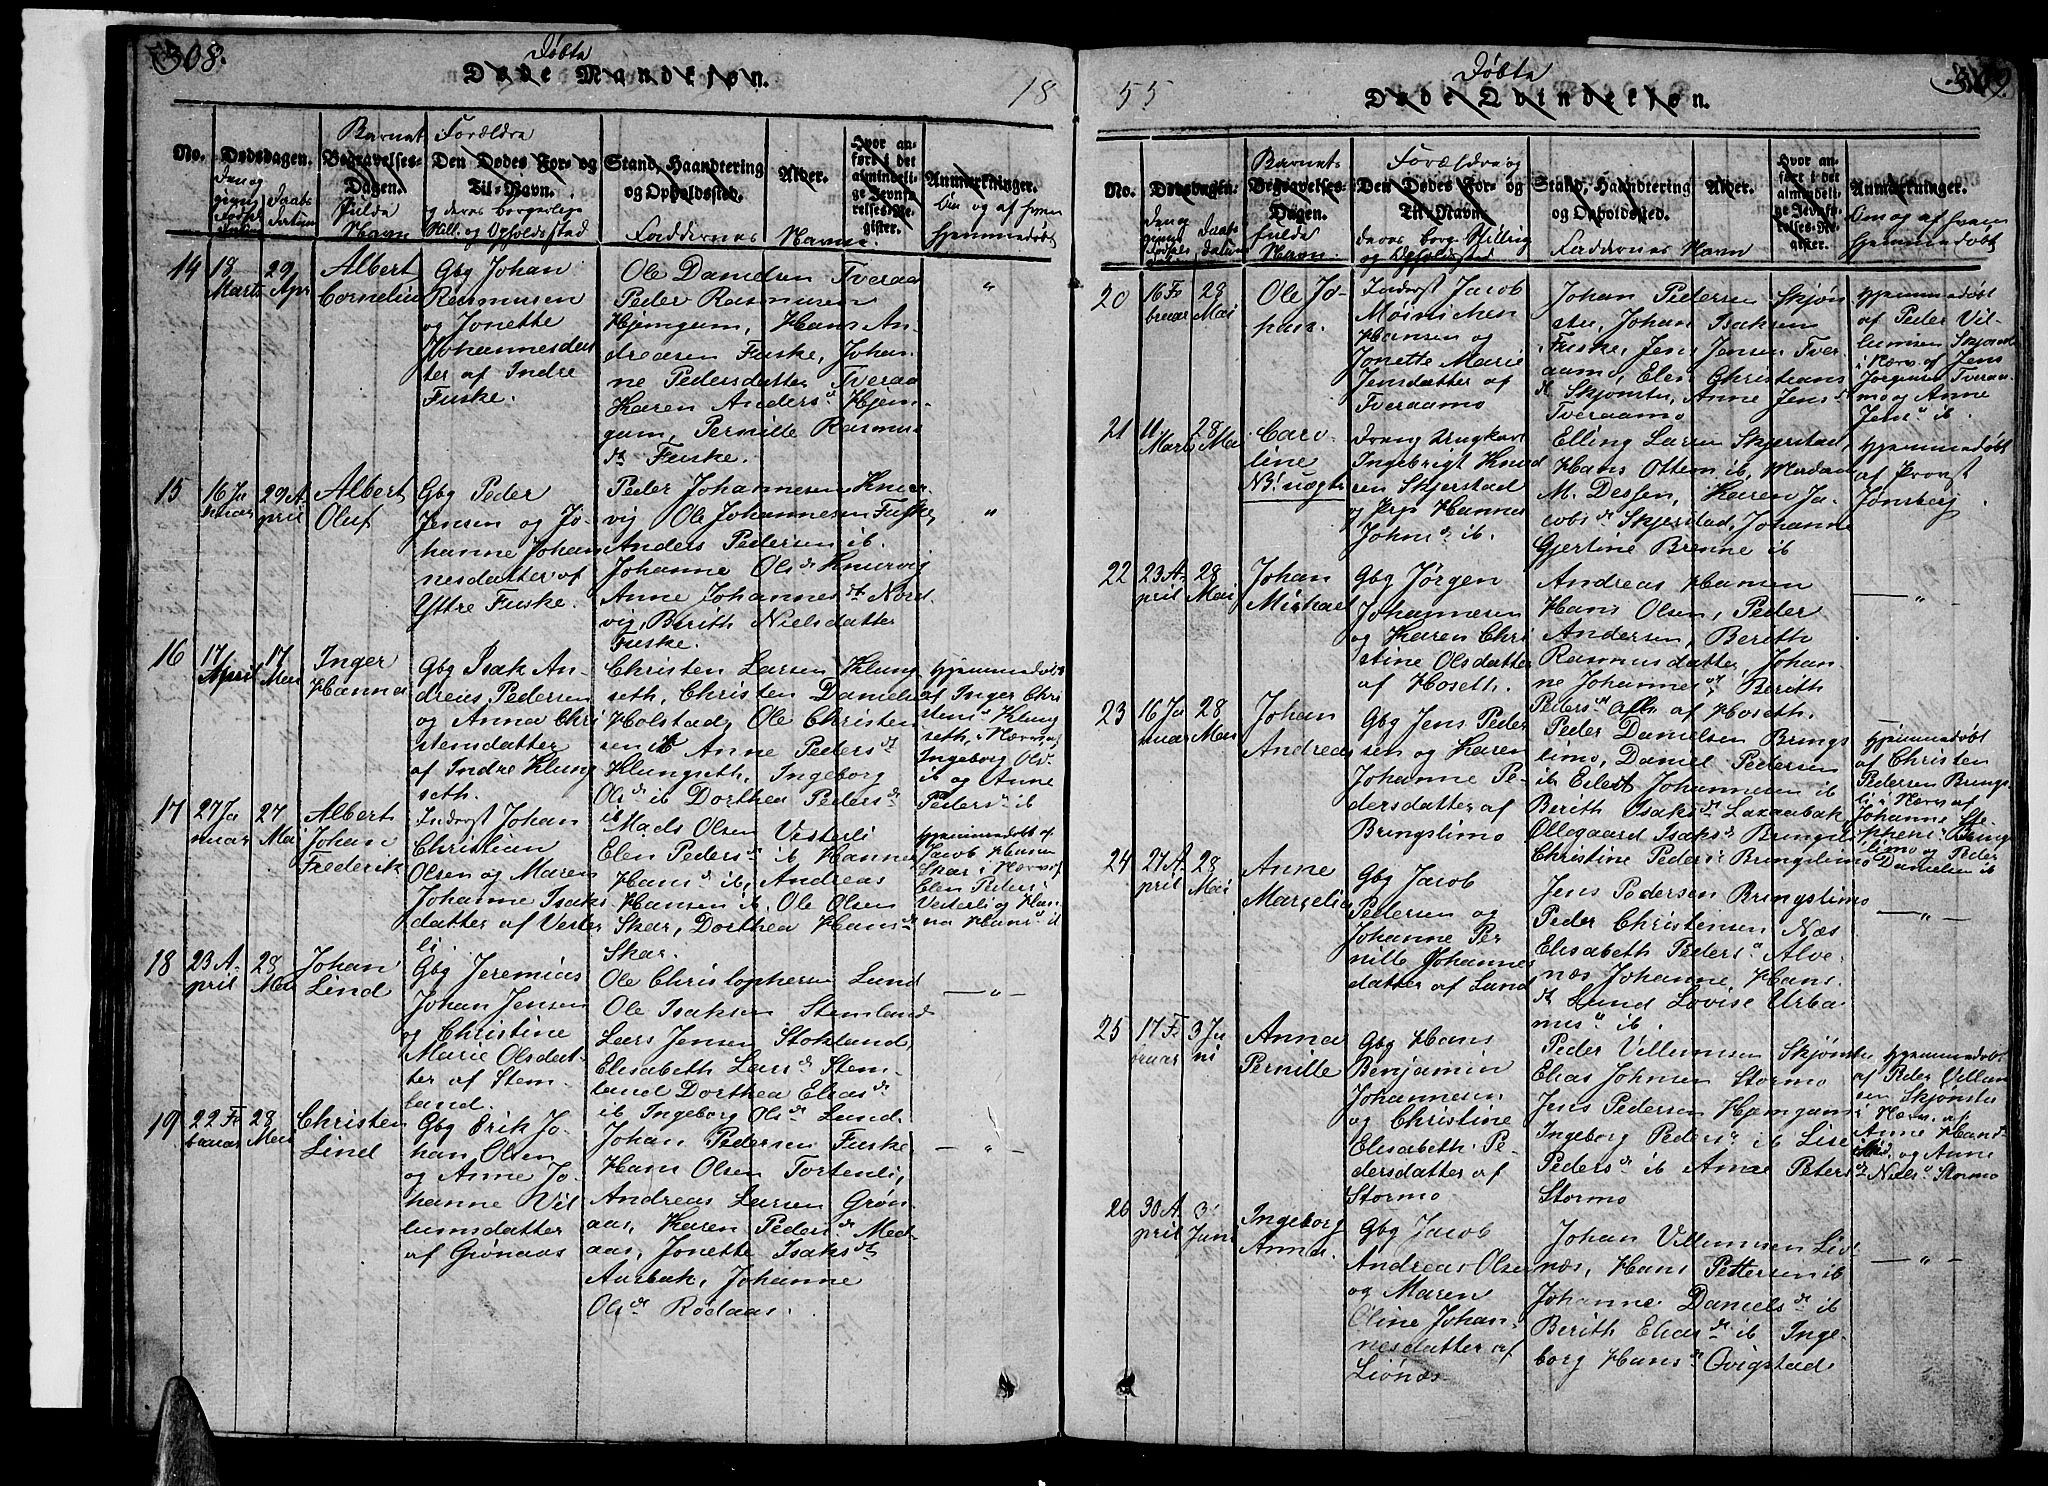 308.
Døbte
Døde Mandkjøn.
18
No.
Dødsdagen.
Barnets
Begravelses-
Dagen.
fulde
Navn
Forældre
Den Dødes For- og
Til-Navn.
og deres borgerlige
Still. og Opholdsted
Stand, Haandtering
og Opholdssted.
Faddernes Navne.
Alder.
Hvor an-
ført i det
almindeli-
ge Jevnfø-
relses-Re-
gister.
Anmærkninger.
Om og af hvem
hjemmedøbt
14
18
Marts
29
Apr
Albert
Cornelius
Gbg Johan
Rasmusen
og Jonette
Johannesdat
ter af Indre
Fuske.
Ole Danielsen Tveraa
Peder Rasmusen
Hjemgam, Hans An-
dreasen Fuske, Johan
ne Pedersdatter Tveraa
Karen Anders dr Hjem-
gam, Pernille Rasmus
dr Fuske.
"
15
16 Ja
nuar
29 A
pril
Albert
Oluf
Gbg Peder
Jensen og Jo-
hanne Johan
nesdatter af
Ytre Fuske.
Peder Johannesen Knær-
vig, Ole Johannesen Fuske,
Anders Pedersen ib.
Johanne Ols dr Knærvig
Anne Johannes dr Nord-
vig, Berith Nielsdatter
Fuske.
"
16
17
April
17
Mai
Inger
Hanna
Gbg Isak An-
dreas Pedersen
og Anna Chri
stensdatter
af Indre Klung
seth.
Christen Larsen Klung
seth, Christen Daniels
Holstad, Ole Christen
sen ib Anne Peders dr
Klungseth, Ingeborg
Ols dr ib Dorthea Peders dr
ib
hjemmedøbt
af Inger Chri
stens dr Klung
seth, i Nærv. af
Ingeborg Ols dr
ib og Anne
Peders dr ib
17
27 Ja
nuar
27
Mai
Albert
Johan
Frederik
Inderst Johan
Christian
Olsen og Maren
Johanne Isaks
datter af Vester
li.
Mads Olsen Vesterli
Elen Peders dr ib Hanna
Hans dr ib, Andreas
Hansen ib, Ole Olsen
Skar, Dorthea Hans dr
Skar.
hjemmedøbt af
Jacob Hansen
Skar i Nærv af
Elen Peders dr
Vesterli og Han-
na Hans dr ib
18
23 A-
pril
28
Mai
Johan
Lind
Gbg Jeremias
Johan Jensen
og Christine
Marie Olsdat-
ter af Stem-
land.
Ole Christophersen Lund
Ole Isaksen Stemland
Lars Jensen Stokland,
Elisabeth Lars dr Stem-
land Dorthea Elias dr
ib Ingeborg Ols dr Lund.
— " —
19
22 Fe
bruar
28
Mai
Christen
Lind
Gbg Erik Jo-
han Olsen
og Anne Jo-
hanne Vil
lumsdatter
af Grønaas
Johan Pedersen Fuske,
Hans Olsen Tortenli,
Andreas Larsen Grøn-
aas, Karen Peders dr Med-
aas, Jonette Isaks dr
Aarbak, Johanne
Ols dr Rødaas.
— " —
55
Døbte
Døde Qvindekjøn.
309.
No.
Dødsdagen.
Barnets
Begravelses-
Dagen.
fulde
Navn
Forældre og
Den Dødes For- og
Til-Navn.
deres borg. Stilling
og Opholdsted
Stand, Haandtering
og Opholdssted.
Faddernes Navn
Alder.
Hvor an-
ført i det
almindeli-
ge Jevnfø-
relses-Re-
gister.
Anmærkninger.
Om og af hvem
hjemmedøbt
20
16 Fe
bruar
28
Mai
Ole Jo-
han.
Inderst Jacob
Møinichen
Hansen og
Jonette Marie
Jensdatter af
Tveraamo
Johan Pedersen Skjøn-
stu, Johan Isaksen
Fuske, Jens Jensen Tver-
aamo, Elen Christians
dr Skjønstu, Anne Jens dr
Tveraamo
hjemmedøbt
af Peder Vil-
lumsen Skjønstu
i Nærv. af Jens
Jørgensen Tveraa-
mo og Anne
Jens dr ib.
21
11
Marts
28
Mai
Caro-
line
NB! uægte
Dreng Ungkarl
Ingebrigt Knud
sen Skjerstad
og Pige Hanna
Johns dr ib.
Elling Larsen Skjerstad,
Hans Ottem ib, Madam
M. Dessen, Karen Ja-
cobs dr Skjerstad, Johanne
Gjertine Brenne ib
hjemmedøbt
af Provst
Jonsberg.
22
23 A-
pril
28
Mai
Johan
Mickael
Gbg Jørgen
Johannesen
og Karen Chri
stine Olsdatter
af Hoseth.
Andreas Hansen
Hans Olsen, Peder
Andersen, Berith
Rasmusdatter, Johan-
ne Johannes dr Berith
Peders dr Alle af Hoseth.
— " —
23
16 Ja
nuar
28
Mai
Johan
Andreas
Gbg Jens Peder
sen og Karen
Johanne Pe-
dersdatter af
Bringslimo
Peder Danielsen Brings
limo, Daniel Pedersen
ib Eilert Johannesen ib
Berith Isaks dr Laxaabak
Ollegaard Isaks dr Bringsli
Christine Peders dr Bringslimo
hjemmedøbt
af Christen
Pedersen Brings
li i Nærv af
Johanne Ste-
phens dr Brings
limo og Peder
Danielsen ib
24
27 A-
pril
28
Mai
Anne
Margelia
Gbg Jacob
Pedersen og
Johanne Per
nille Johannes
datter af Lund
Jens Pedersen Bringslimo
Peder Christensen Næs
Elisabeth Peders dr Alve-
næs Johanne Hans
dr Lund Lovise Urba-
nus dr ib.
— " —
25
17 Fe
bruar
3 Ju
ni
Anna
Pernille
Gbg Hans
Benjamin
Johannesen
og Christine
Elisabeth Pe-
dersdatter af
Stormo
Peder Villumsen Skjønstu
Elias Johnsen Stormo
Jens Pedersen Hjemgam
Ingeborg Peders dr ib Lise
Peders dr ib Anne Peters dr
Stormo
hjemmedøbt
af Peder Villum
sen Skjønstu
i Nærv. af
Anne Hans dr
og Anne
Niels dr Stormo
26
30 A
pril
3
Juni
Ingeborg
Anna
Gbg Jacob
Andreas Olsen
og Maren
Oline Johan-
nesdatter af
Liønæs
Johan Villumsen Liø-
næs, Hans Pettersen ib
Johanne Daniels dr ib
Berith Elias dr ib Inge-
borg Hans dr Qvigstad
— " —